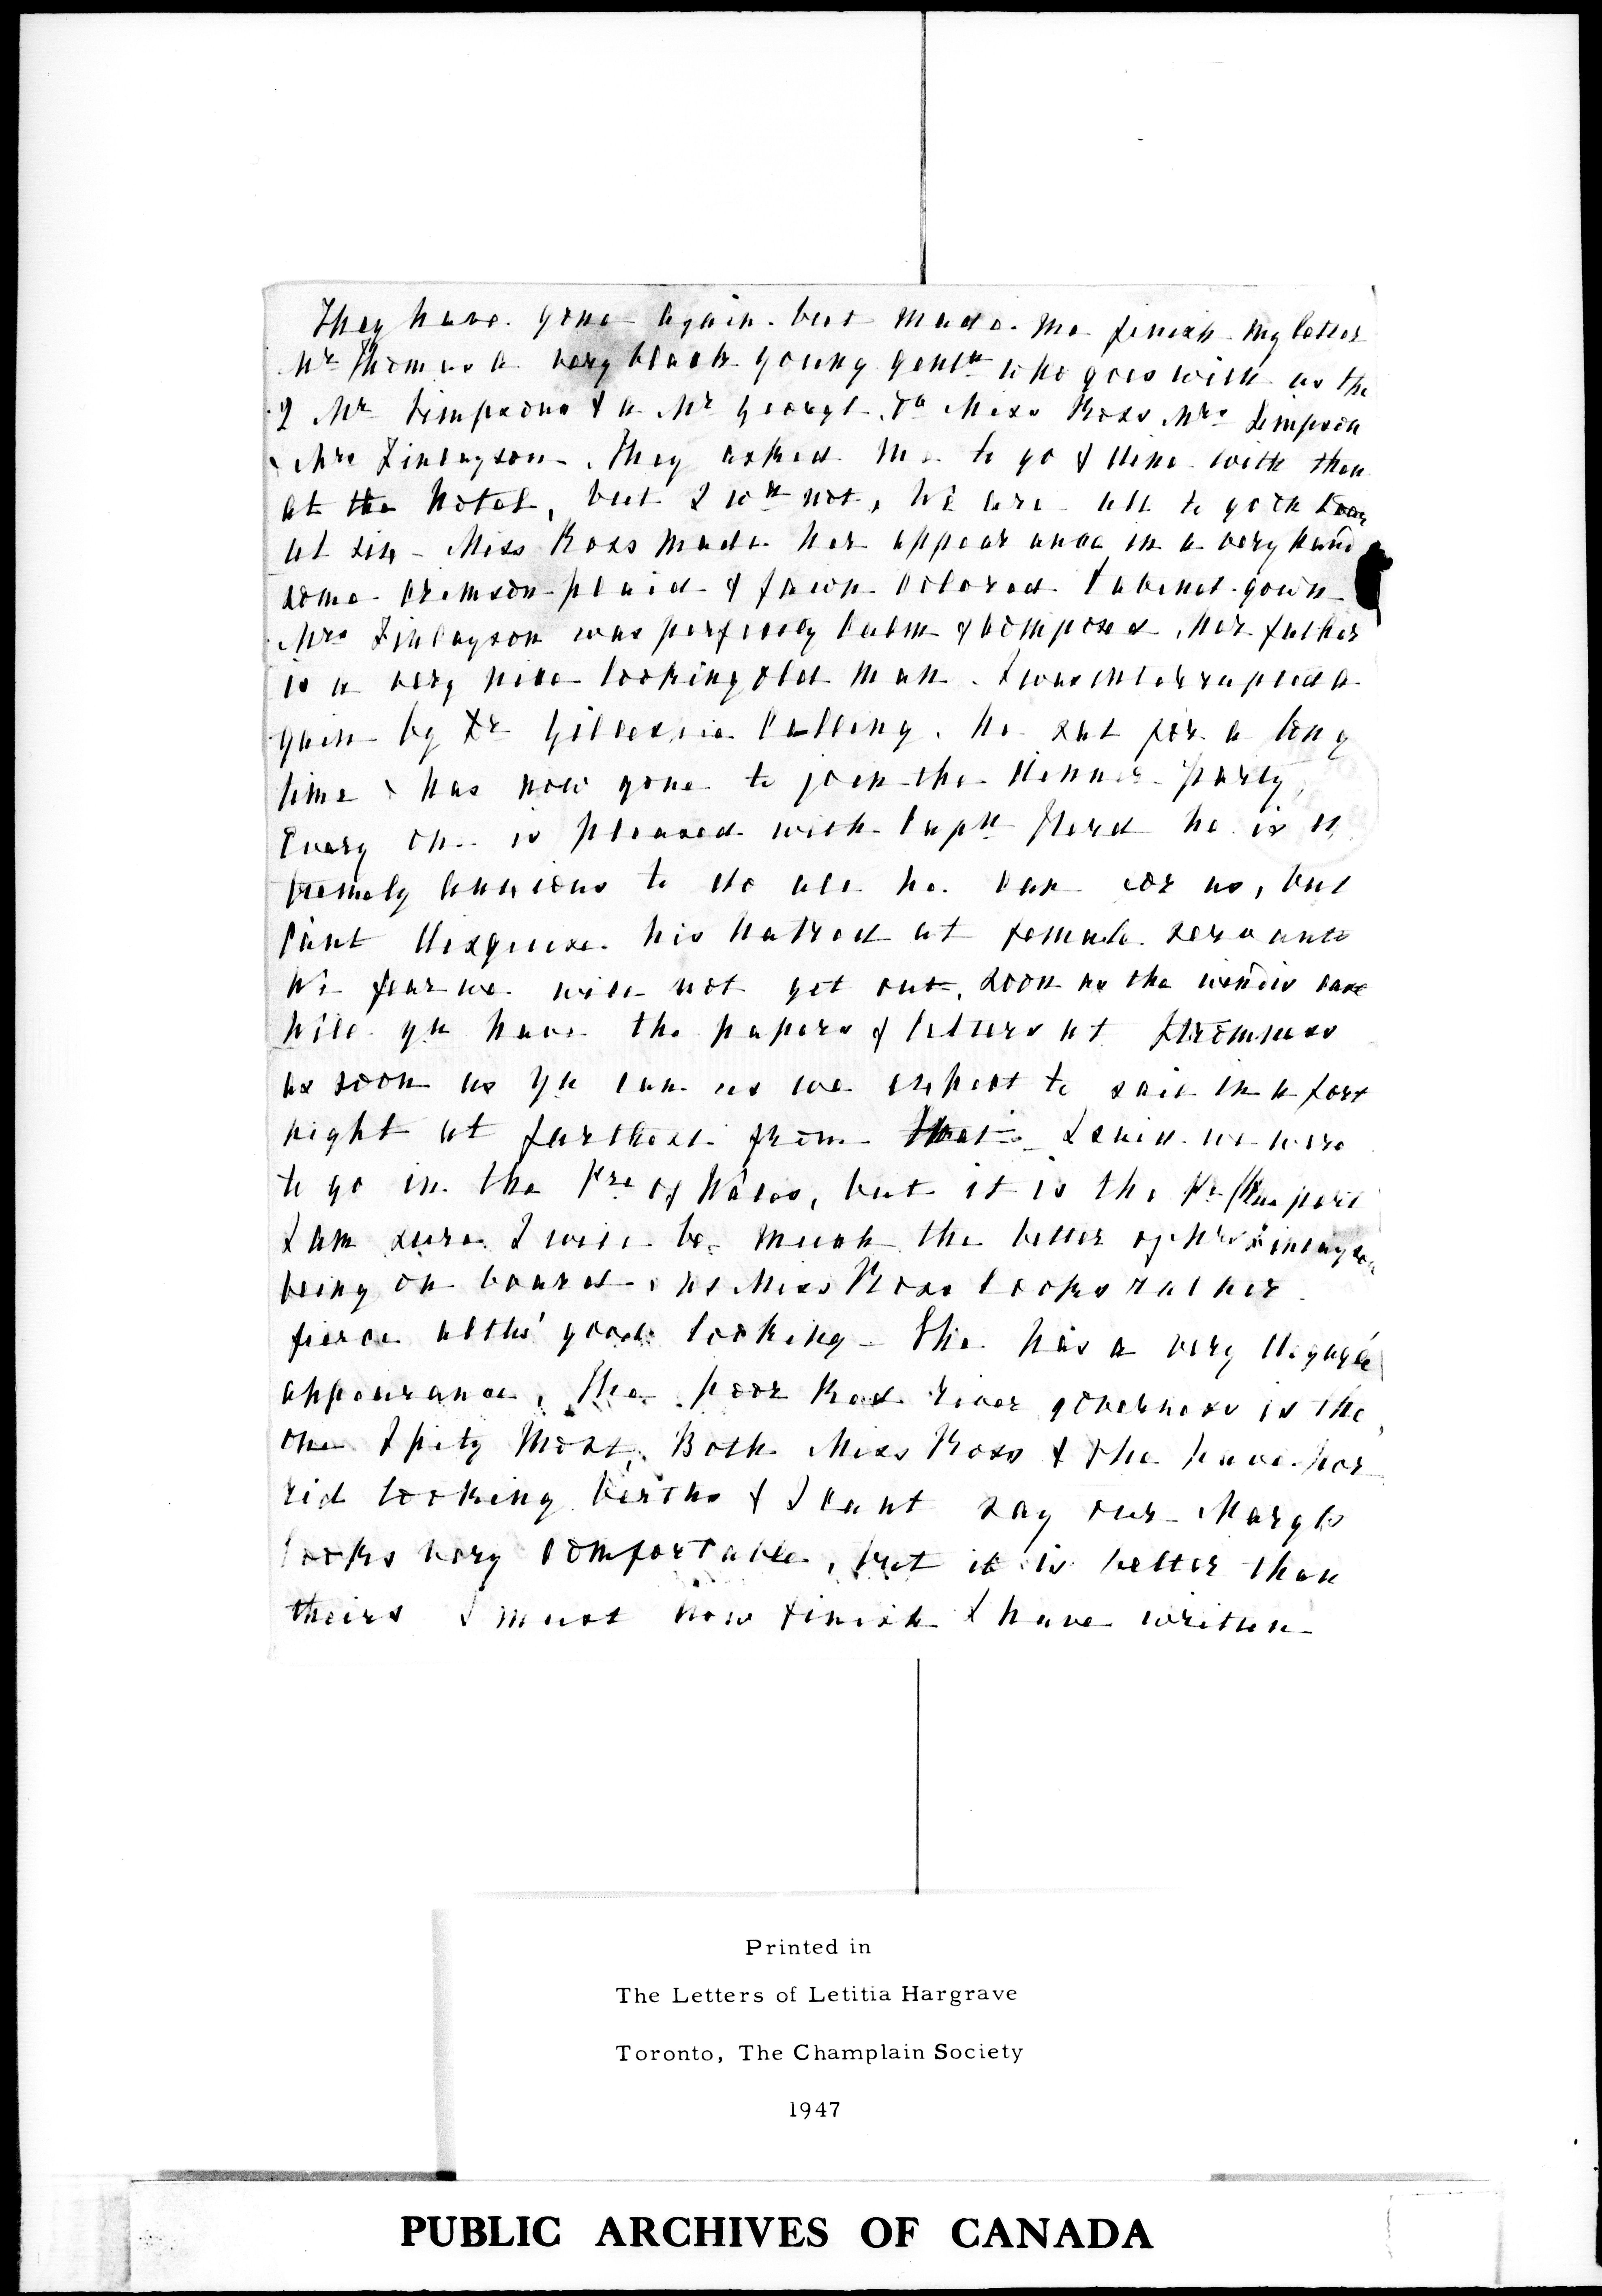 They have gone again but made me finish my letter
Mr Thomas a very black young gentn who goes with us the
2 Mr Simpsons & a Mr George Do Miss Ross Mrs Simpson
Mrs Finlayson. They asked me to go & dine with them
at the hotel, but I wd not, We are all to go on
at six - Miss Ross made her appearance in a very hand
some crimson plaid & fawn colored Cabinet gown
Mrs Finlayson was perfectly calm & composed, her father
is a very nice looking old man. I was interrupted a
gain by Dr Gillespie calling. he sat for a long
time & has now gone to join the dinner party,
Every one is pleased with Captn Herd he is ex
tremely anxious to do all he can for us, but
cant disguise his hatred at female servants
We fear we will not get out, soon as the wind is east
Will yu have the papers & letters at Stromness
as soon as yu can as we expect to sail in a fort
night at farthest from that. I said we were
to go in the Pre of Wales, but it is the Pr Rupert
I am sure I will be much the better of Mrs Finlayson
being on board as Miss Ross looks rather
fierce altho' good looking - She has a very dégagée
appearance, The poor Red river governess is the
one I pity most, Both Miss Ross & she have hor
rid looking births & I cant say our Margts
looks very comfortable, but it is better than
theirs I must now finish I have written
Printed in
The Letters of Letitia Hargrave
Toronto, The Champlain Society
1947
PUBLIC ARCHIVES OF CANADA